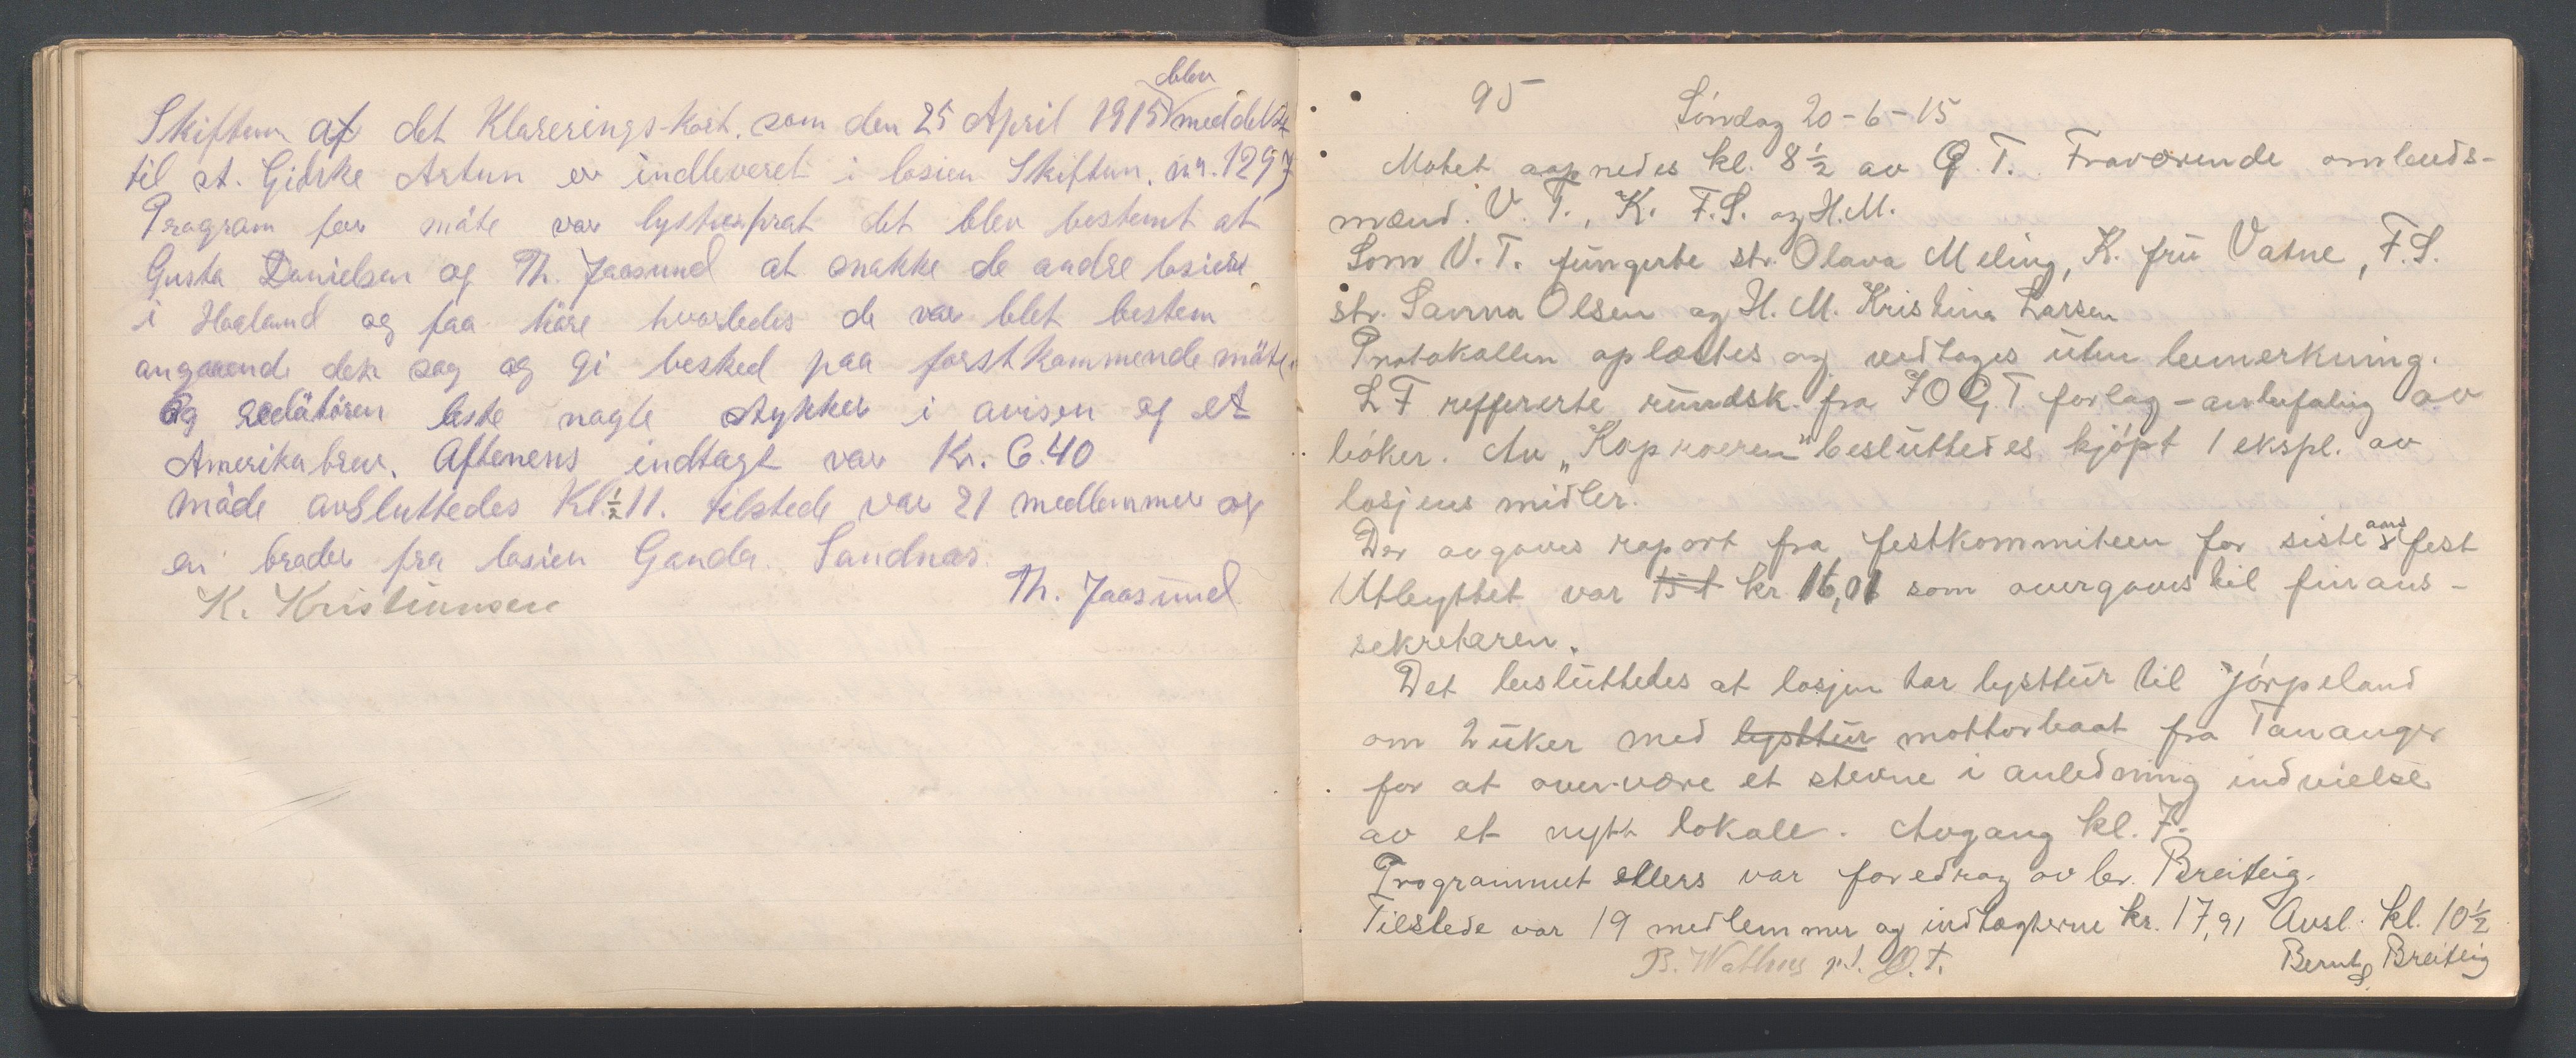 Skiftun af det Klarerings-kort. som den 25 April 1915 blev meddelst
til st. Gidske Artun er indleveret i losien Skiftun. nr. 1297
Program for møte var lystenprat det blev bestemt at
Gusta Danielsen og Th. Jaasund at snakke de andre losiene
i Haaland og faa høre hvorledes de var blet bestem
angaaende den sag og gi besked paa førstkommende møte.
Og redätören leste nogle stykker i avisen og et
Amerikabrev. Aftenens indtagt var Kr. 6.40
møde avsluttedes Kl. ½ 11. tilstede var 21 medlemmer og
en broder fra losien Ganda. Sandnæs.
Th. Jaasund
K. Kristiansen
95
Søndag 20-6-15
Møtet aapnedes kl. 8½ av O. T. Fraværende ombuds-
mænd. V. T., K. F.S. og H.M.
Som V. T. fungerte str. Olava Meling, K. fru Vatne, F.S.
str. Sanna Olsen og H. M. Kristina Larsen
Protokollen oplæstes og vedtages uten bemerkning.
L F reffererte rundsk. fra IOGT forlag - anbefaling av
bøker. Av „Kaproeren" besluttedes kjøpt 1 ekspl. av
losjens midler.
Der avgaves raport fra festkommiteen for siste aars fest
Utbyttet var kr 16,01 som overgaves til finans-
sekretæren.
Det besluttedes at losjen har lysttur til Jørpeland
om 2 uker med lysttur mottorbaat fra Tananger
for at over-være et stevne i anledning indvielse
av et nytt lokale. Avgang kl. 7.
Programmet ellers var foredrag av br. Breiteig.
Tilstede var 19 medlemmer og indtægterne kr. 17,91 Avsl. kl. 10½
B. Wathne p.t. O.T.
Bernt Breiteig
S.